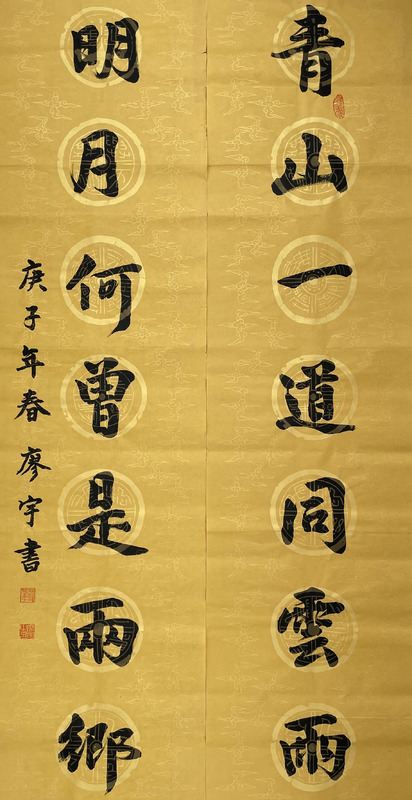 青山一道同雲雨
明月何曾是兩鄉
庚子年春廖宇書